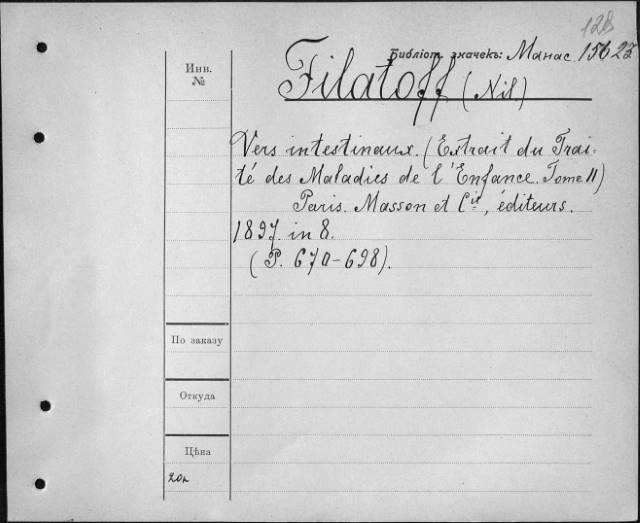 128
Библіот. значекъ: Манас. 15622
Инв.
№
Filatoff (Nil)
Vers intestinaux. (Extrait du Trai-
té des Maladies de l'Enfance. Tome II)
Paris. Masson et Cie, éditeurs.
1897. in 8.
(P. 670-698).
По заказу
Откуда
Цѣна